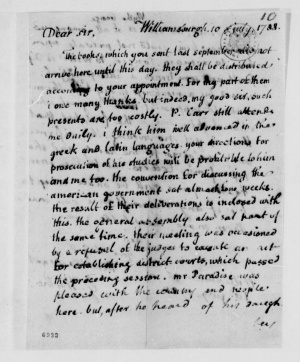 10
Williamsburgh, 10 July, 1788.
Dear Sir,
The books, which you sent last september did not
arrive here until this day. they shall be distributed
according to your appointment. For my part of them
i owe many thanks. but indeed, my good sir, such
presents are too costly. P. Carr still attends
me daily. i think him well advanced in the
greek and latin languages. your directions for
prosecution of his studies will be profitable to him
and me too. the convention for discussing the
american government sat almost four weeks.
the result of their deliberations is inclosed with
this. the general assembly also sat part of
the same time. their meeting was occasioned
by a refusal of the judges to execute an act
for establishing district courts, which passed
the preceding session. mr Paradise was
pleased with the country and people
here. but, after he heard of his daugh
ters